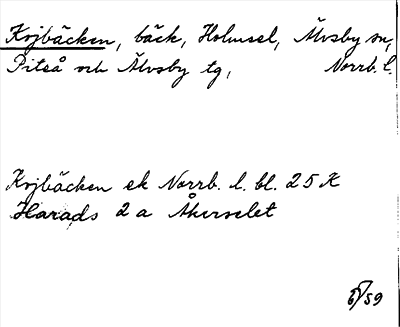 Kojbäcken, bäck, Holmsel, Älvsby sn,
Piteå och Älvsby tg, Norrb. l.
Kojbäcken ek Norrb. l. bl. 25 K
Harads 2 a Åkerselet
/59